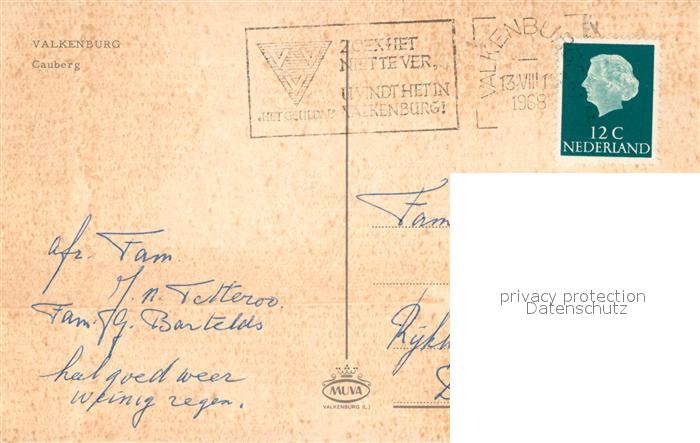 VALKENBURG
Cauberg
ZOEK HET
NIET TE VER,
U VINDT HET IN
"HET GEULDAL" VALKENBURG!
VALKENBURG
13.VIII
1968
12 C
NEDERLAND
Fam
privacy protection
Datenschutz
afz. Fam
J. n. Tetteroo.
Fam. G. Bartelds
heel goed weer
weinig regen.
MUVA
VALKENBURG (L.)